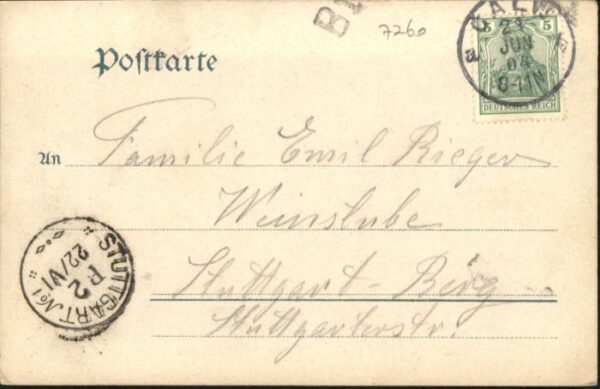 7260
CALW
5
21
JUN
04
8-11N
a
DEUTSCHES REICH
Postkarte
An Familie Emil Rieger
Weinstube
Stuttgart-Berg
Stuttgarterstr.
STUTTGART No 1
P2
22/VI